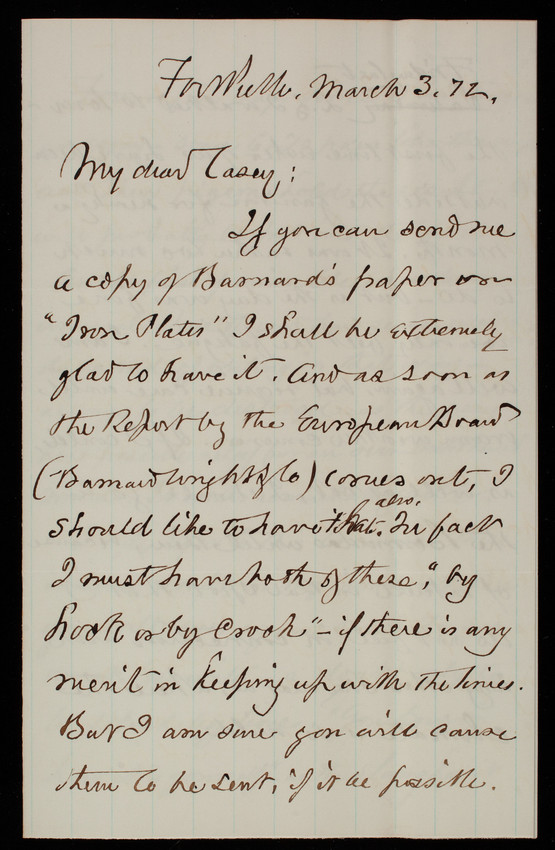 March 3. 72.
My dear Casey:
If you can send me
a copy of Barnard's paper on
"Iron Plates" I shall be extremely
glad to have it. And as soon as
the Report by the European Board
(Barnard Wright & Co) comes out, I
should like to have that also. In fact
I must have both of these, "by
hook or by crook" – if there is any
merit in keeping up with the times.
But I am sure you will cause
them to be sent, if it be possible.